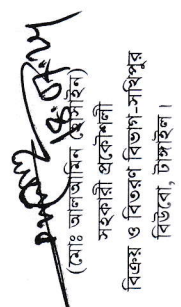 (মোঃ আলআমিন হোসাইন)
সহকারী প্রকৌশলী
বিক্রয় ও বিতরণ বিভাগ-সখিপুর
বিউবো, টাঙ্গাইল।